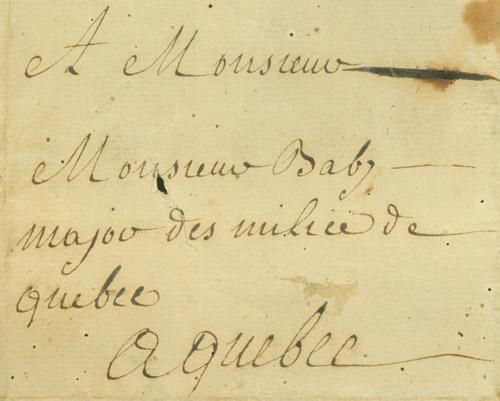 A Monsieur
Monsieur Baby
major des milice de
quebec
A quebec